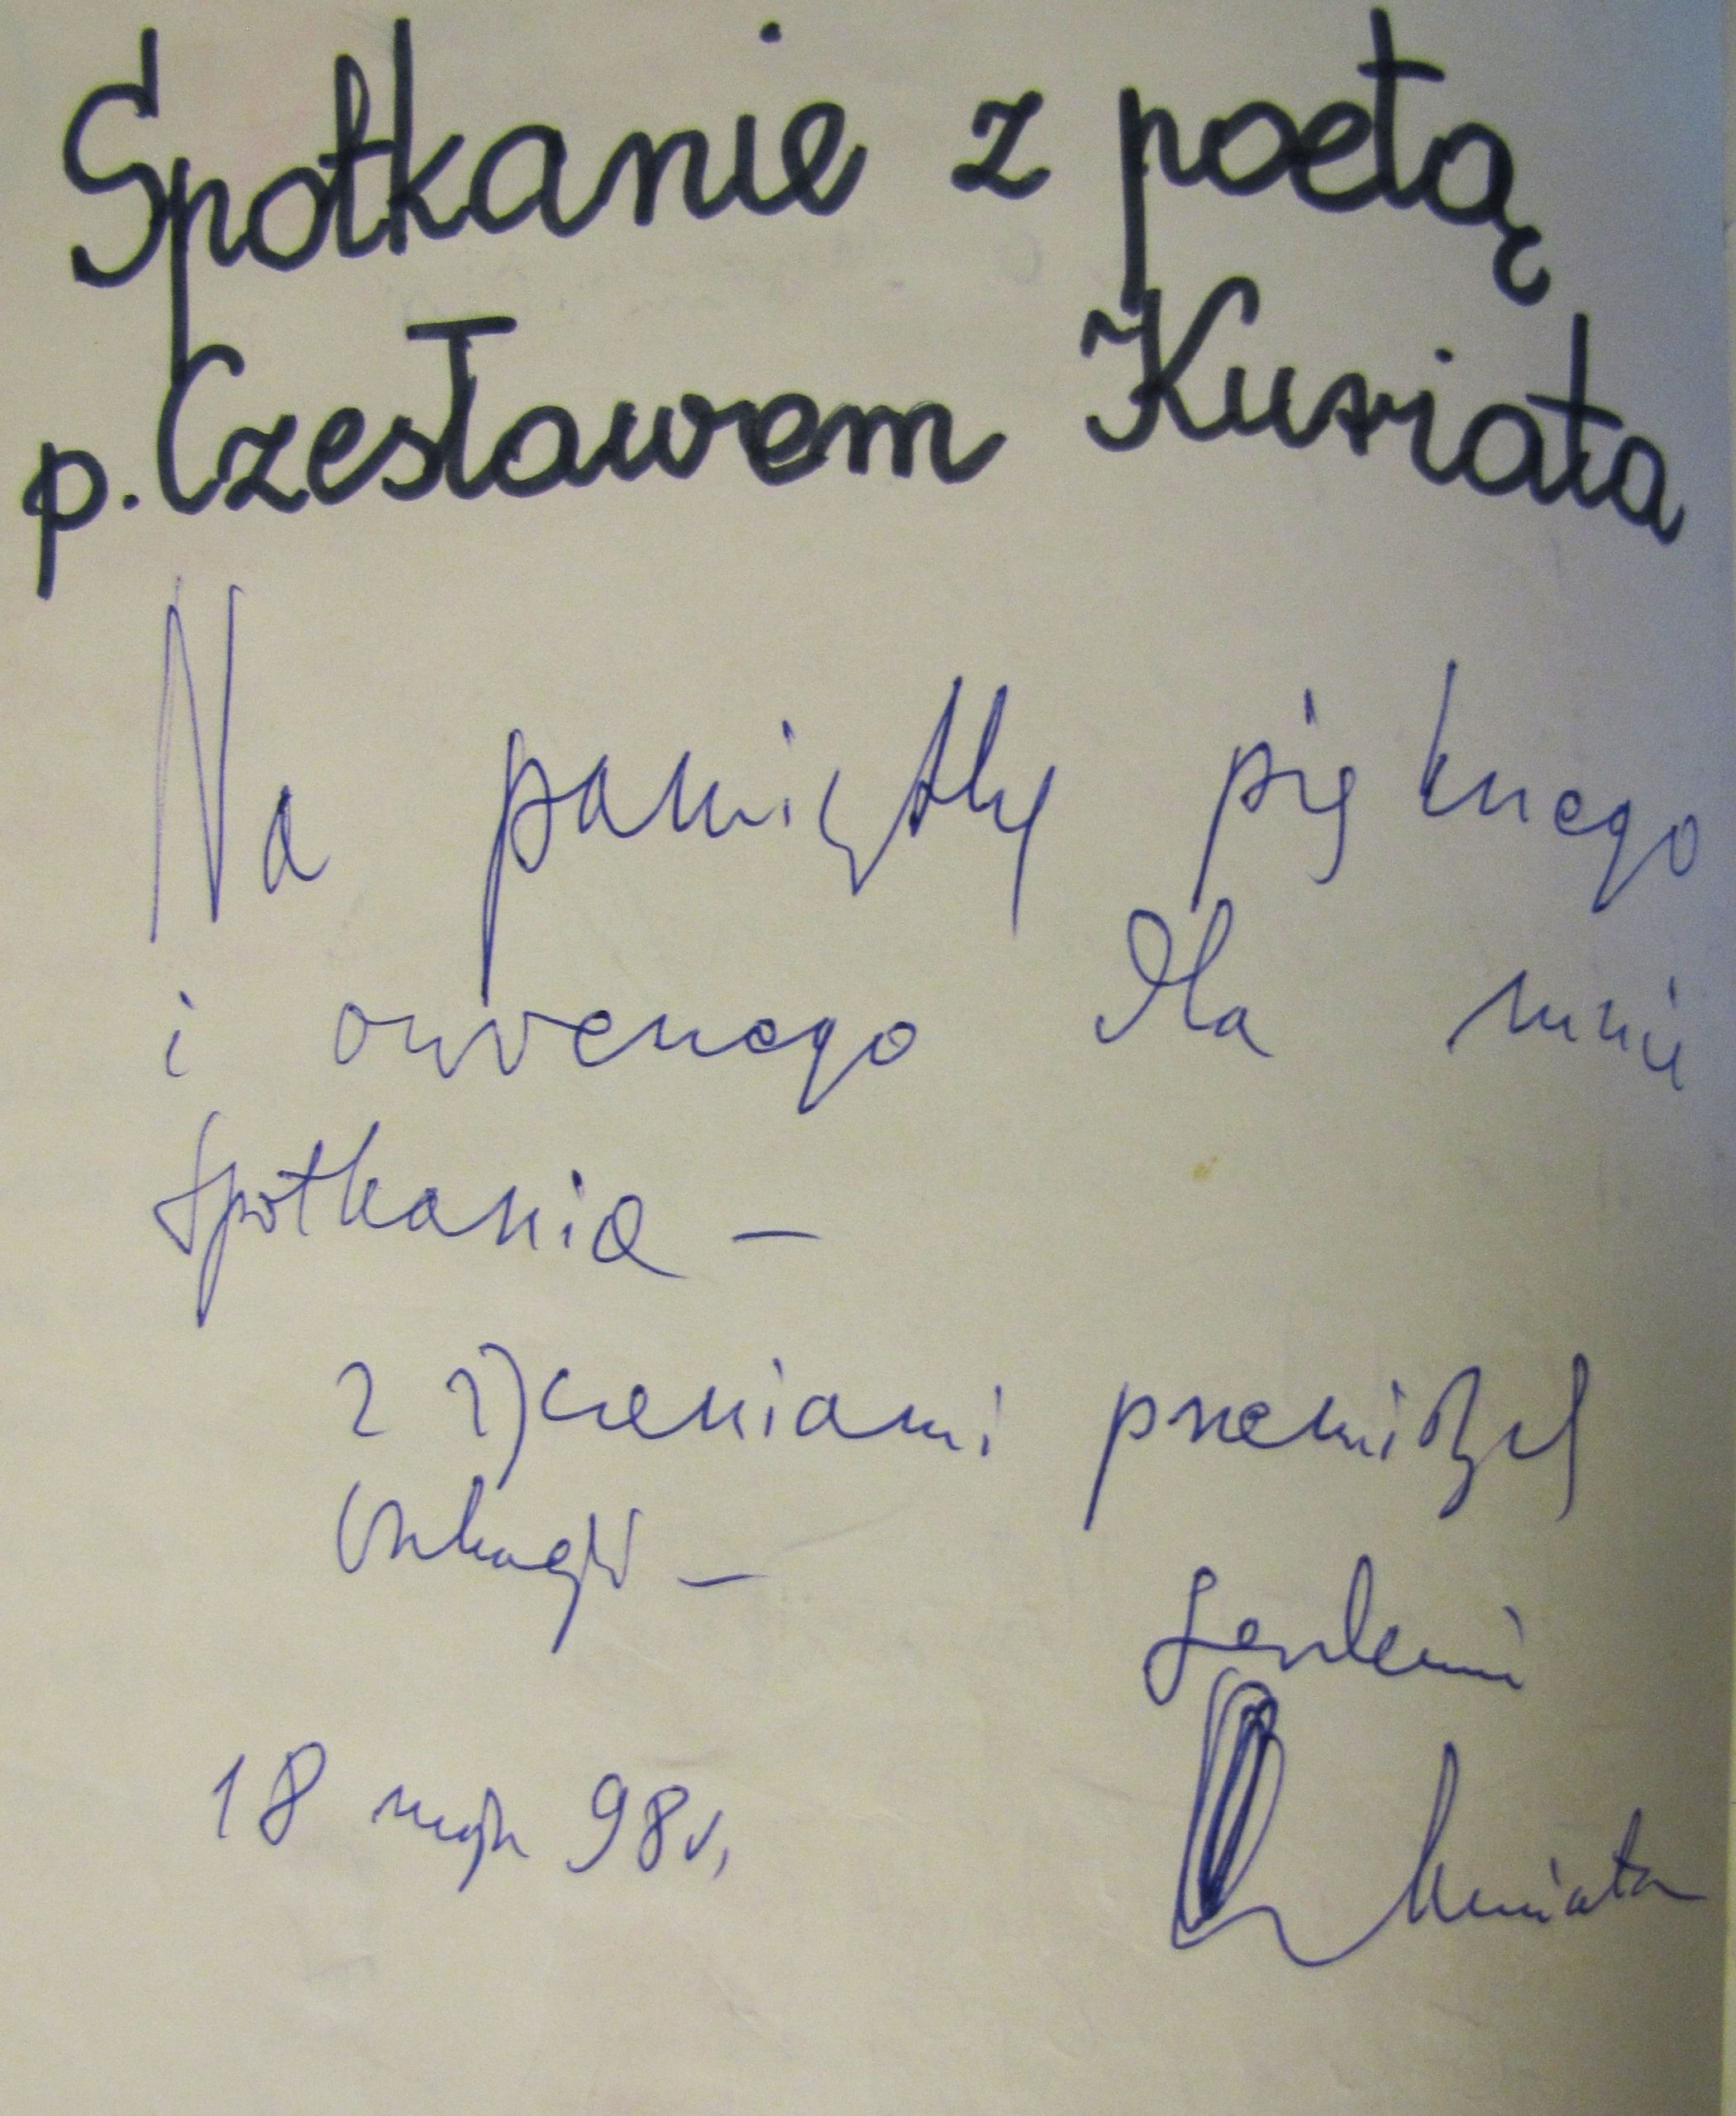 Spotkanie z poetą
p. Czesławem Kuriata
Na pamiątkę pięknego
i owocnego dla mnie
spotkania –
z życzeniami przemiłych
18 maja 98 r.
Serdecznie
Kuriata